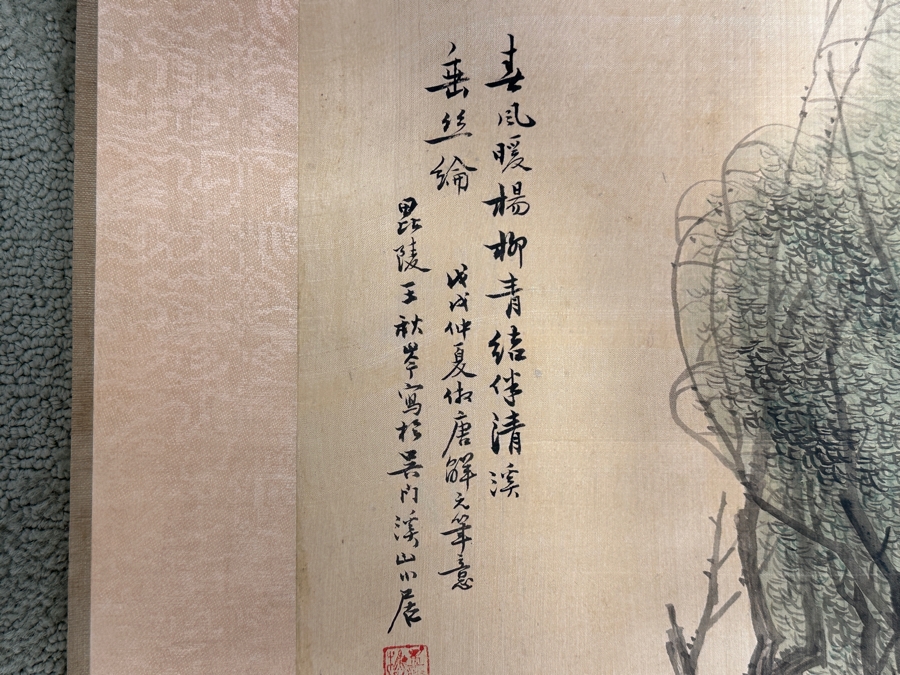 春風暖楊柳青結伴清溪
垂丝綸
戊戌仲夏仿唐解元筆意
毘陵王秋岑寫於吴门溪山小居